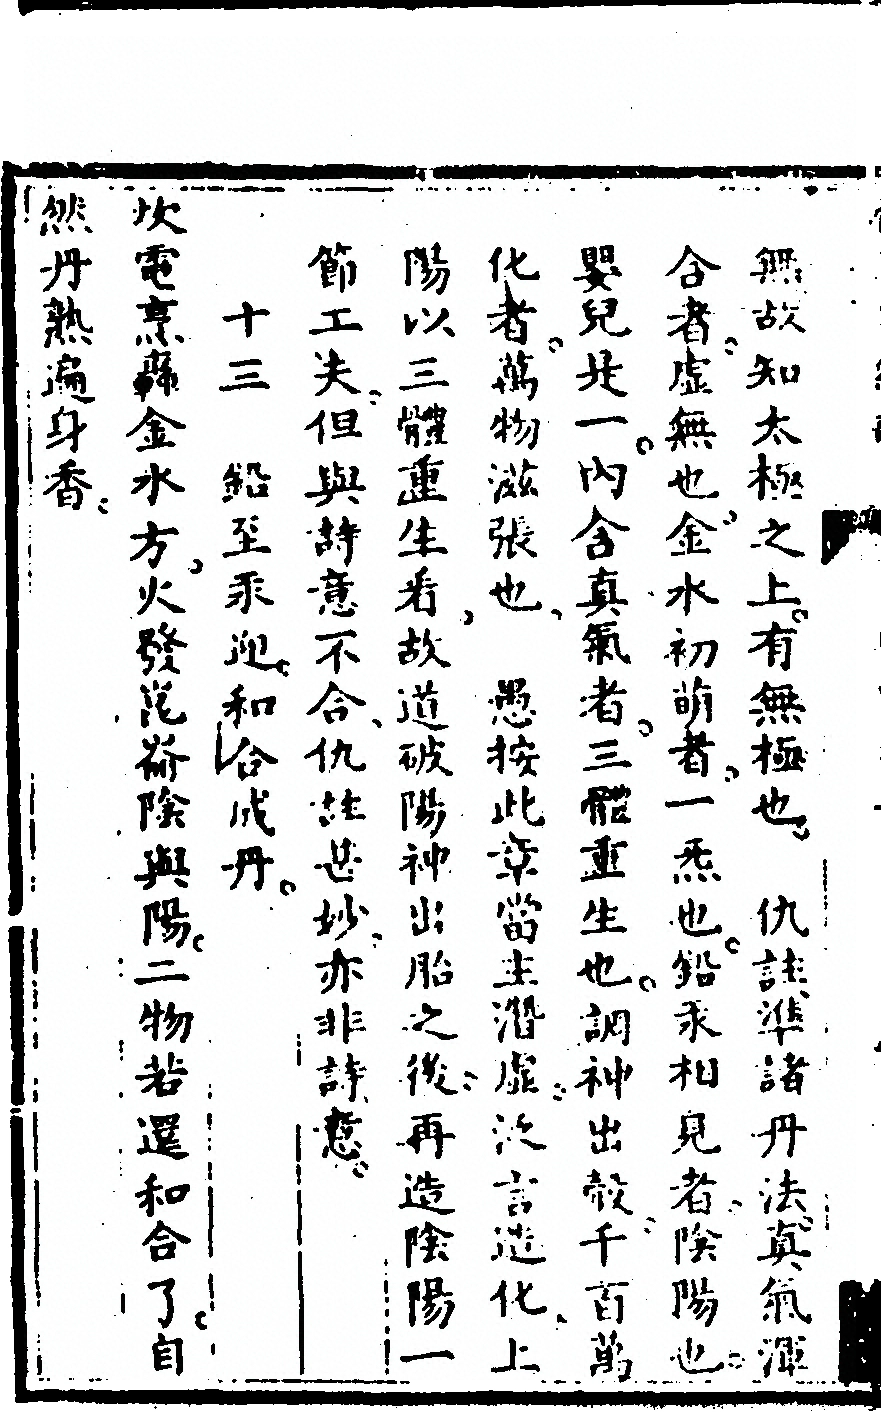 無故知太極之上有無極也　仇註準諸丹法真氣渾
含者虛無也金水初萌者一炁也鉛汞相見者陰陽也
嬰兒是一內含真氣者三體重生也調神出殼千百萬
化者萬物滋張也　愚按此章當主潛虛泛言造化上
陽以三體重生看故道破陽神出胎之後再造陰陽一
節工夫但與詩意不合仇註甚妙亦非詩意
十三　鉛至汞迎和合成丹
炊電烹轟金水方火發崑崙陰與陽二物若還和合了自
然丹熟遍身香